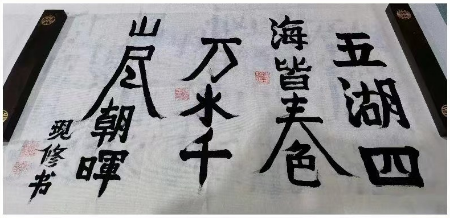 五湖四
海皆春色
万水千
山尽朝暉
現修书